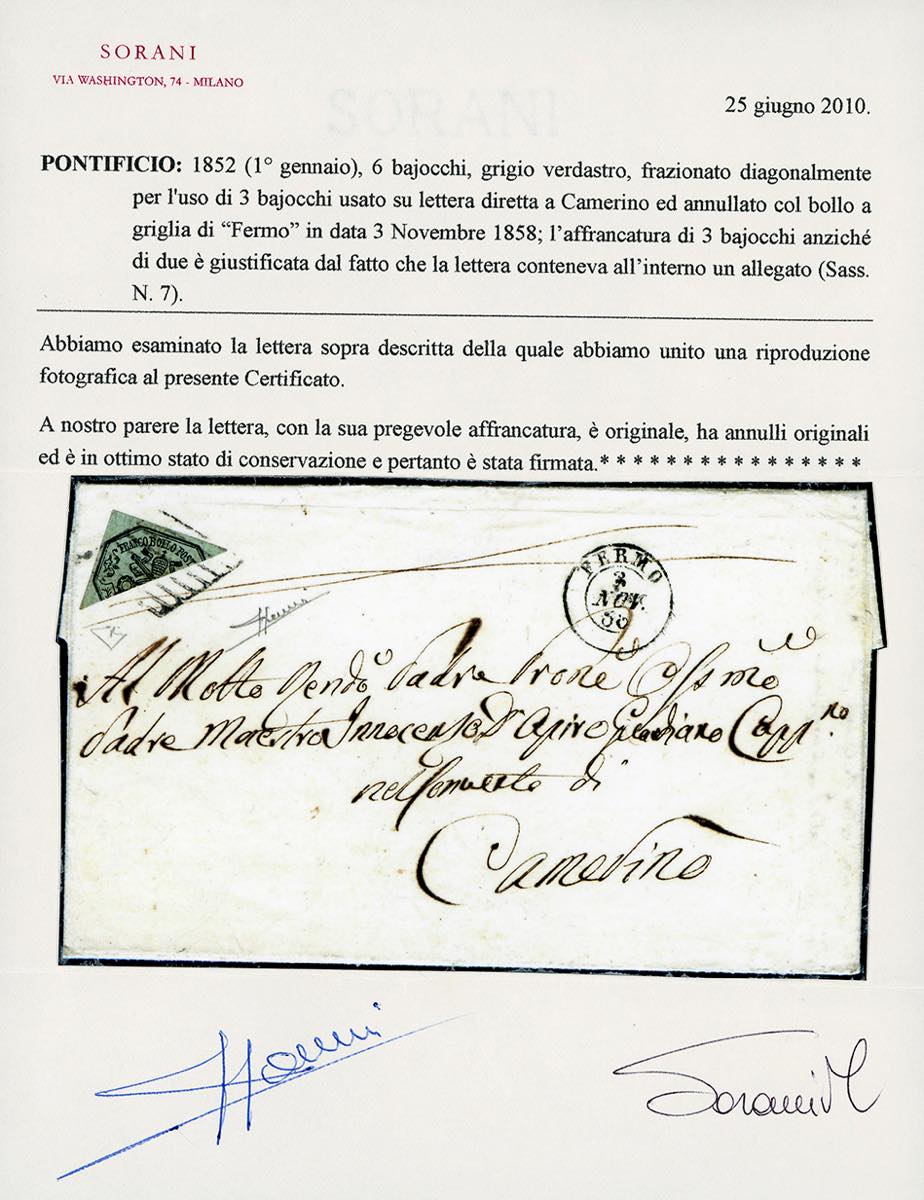 SORANI
VIA WASHINGTON, 74 - MILANO
SORANI
25 giugno 2010.
PONTIFICIO: 1852 (1° gennaio), 6 bajocchi, grigio verdastro, frazionato diagonalmente
per l'uso di 3 bajocchi usato su lettera diretta a Camerino ed annullato col bollo a
griglia di “Fermo” in data 3 Novembre 1858; l’affrancatura di 3 bajocchi anziché
di due è giustificata dal fatto che la lettera conteneva all’interno un allegato (Sass.
N. 7).
Abbiamo esaminato la lettera sopra descritta della quale abbiamo unito una riproduzione
fotografica al presente Certificato.
A nostro parere la lettera, con la sua pregevole affrancatura, è originale, ha annulli originali
ed è in ottimo stato di conservazione e pertanto è stata firmata.* * * * * * * * * * * * * * * *
FRANCO BOLLO POST
FERMO
3
NOV.
Al Molto Rendo Padre Prone
Padre Maestro Innocenzo D'Apiro Guardiano Capp.no
nel Convento di
Camerino
Sorani M